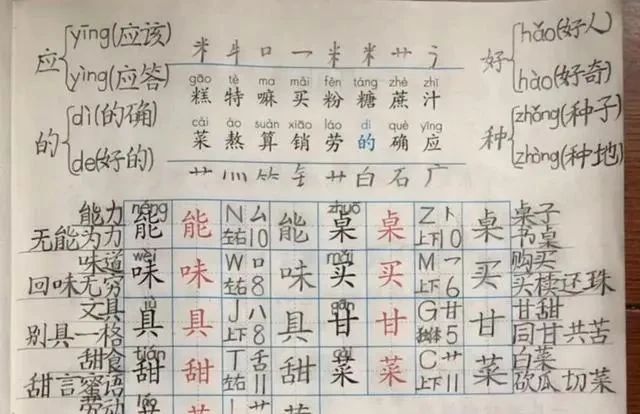 应 yīng(应该) yìng(应答)
的 dì(的确) de(好的)
米 牛 口 乛 米 米 艹 氵
gāo tè ma mǎi fěn táng zhè zhī
糕 特 嘛 买 粉 糖 蔗 汁
cài áo suàn xiāo láo dí què yīng
菜 熬 算 销 劳 的 确 应
艹 灬 ⺮ 钅 艹 白 石 广
好 hǎo(好人) hào(好奇)
种 zhǒng(种子) zhòng(种地)
能力 néng zhuō 桌子
无能为力 能 能 N 厶 左右 10 能 桌 桌 Z 上下 10 桌 书桌
味道 wèi mǎi 购买
回味无穷 味 味 W 口 左右 8 味 买 买 M 乛 上下 6 买 买椟还珠
文具 jù gān 甘甜
别具一格 具 具 J 八 上下 8 具 甘 甘 G 廿 独体 5 甘 同甘共苦
甜食 tián cài 白菜
甜言蜜语 甜 甜 T 舌 左右 11 甜 菜 菜 C 艹 上下 11 菜 砍瓜切菜
劳动